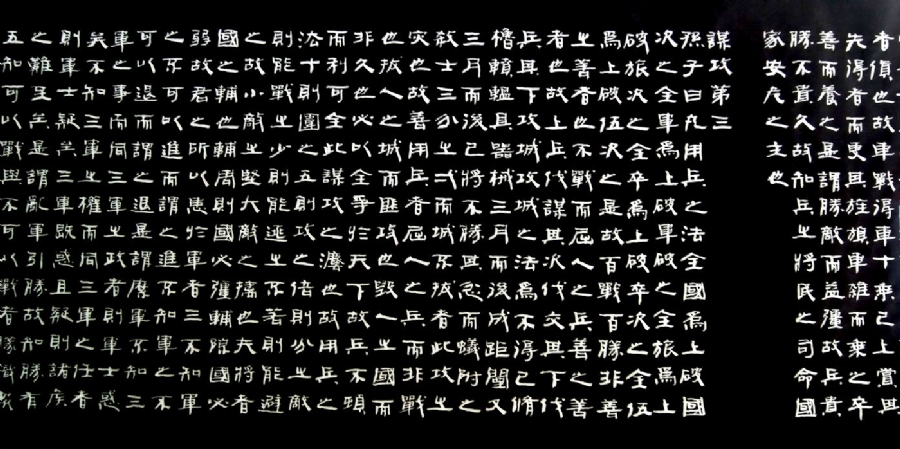 者貨也故車戰得車十乘已上賞其
先得者而更其旌旗車雜而乘之卒
善而養之是謂勝敵而益彊故兵貴
勝不貴久故知兵之將民之司命國
家安危之主也
謀攻第三
孫子曰凡用兵之法全國為上破國
次之全軍為上破軍次之全旅為上
破旅次之全卒為上破卒次之全伍
為上破伍次之是故百戰百勝非善
之善者也不戰而屈人之兵善之善
者也故上兵伐謀其次伐交其次伐
兵其下攻城攻城之法為不得已脩
櫓轒轀具器械三月而後成距闉又
三月而後已將不勝其忿而蟻附之
殺士三分之一而城不拔者此攻之
災也故善用兵者屈人之兵而非戰
也拔人之城而非攻也毀人之國而
非久也必以全爭於天下故兵不頓
而利可全此謀攻之法也故用兵之
法十則圍之五則攻之倍則分之敵
則能戰之少則能逃之不若則能避
之故小敵之堅大敵之擒也夫將者
國之輔也輔周則國必彊輔隙國必
弱故君之所以患於軍者三不知軍
之不可以進而謂之進不知軍之不
可以退而謂之退是謂縻軍不知三
軍之事而同三軍之政者則軍士惑
矣不知三軍之權而同三軍之任者
則軍士疑矣三軍既惑且疑則諸侯
之難至矣是謂亂軍引勝故知勝有
五知可以戰與不可以戰者勝識眾